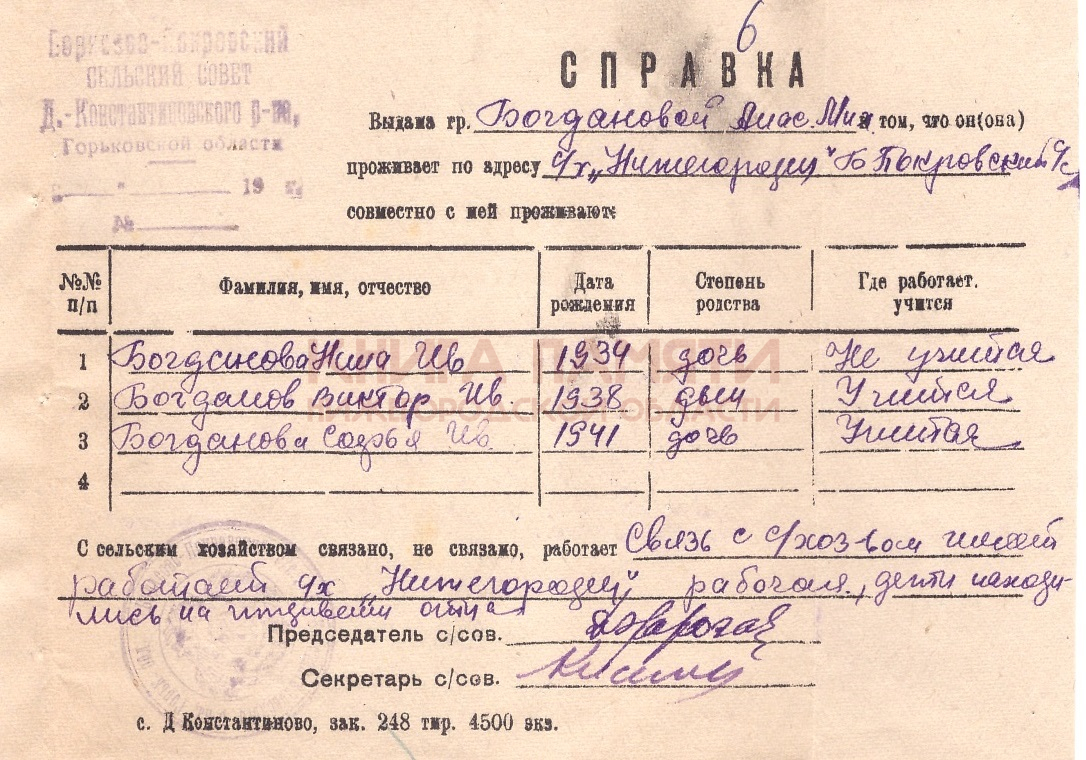 6
Борисово-Покровский
СЕЛЬСКИЙ СОВЕТ
Д.-Константиновского р-на,
Горьковской области
19 г.
№
СПРАВКА
Выдана гр. Богдановой Анас. Мих в том, что он(она)
проживает по адресу с/х „Нижегородец" Б Покровский с/с
совместно с ней проживают:
№№ п/п Фамилия, имя, отчество Дата рождения Степень родства Где работает. учится
1 Богданова Нина Ив 1934 дочь Не учится
2 Богданов Виктор Ив. 1938 сын Учится
3 Богданова Софья Ив. 1941 дочь Учится
4
КНИГА ПАМЯТИ
НИЖЕГОРОДСКОЙ ОБЛАСТИ
С сельским хозяйством связано, не связано, работает Связь с с/хоз-вом имеет
работает с/х „Нижегородец" рабочая, дети находи-
лись на иждивении отца
Председатель с/сов.
Секретарь с/сов.
с. Д Константиново, зак. 248 тир. 4500 экз.